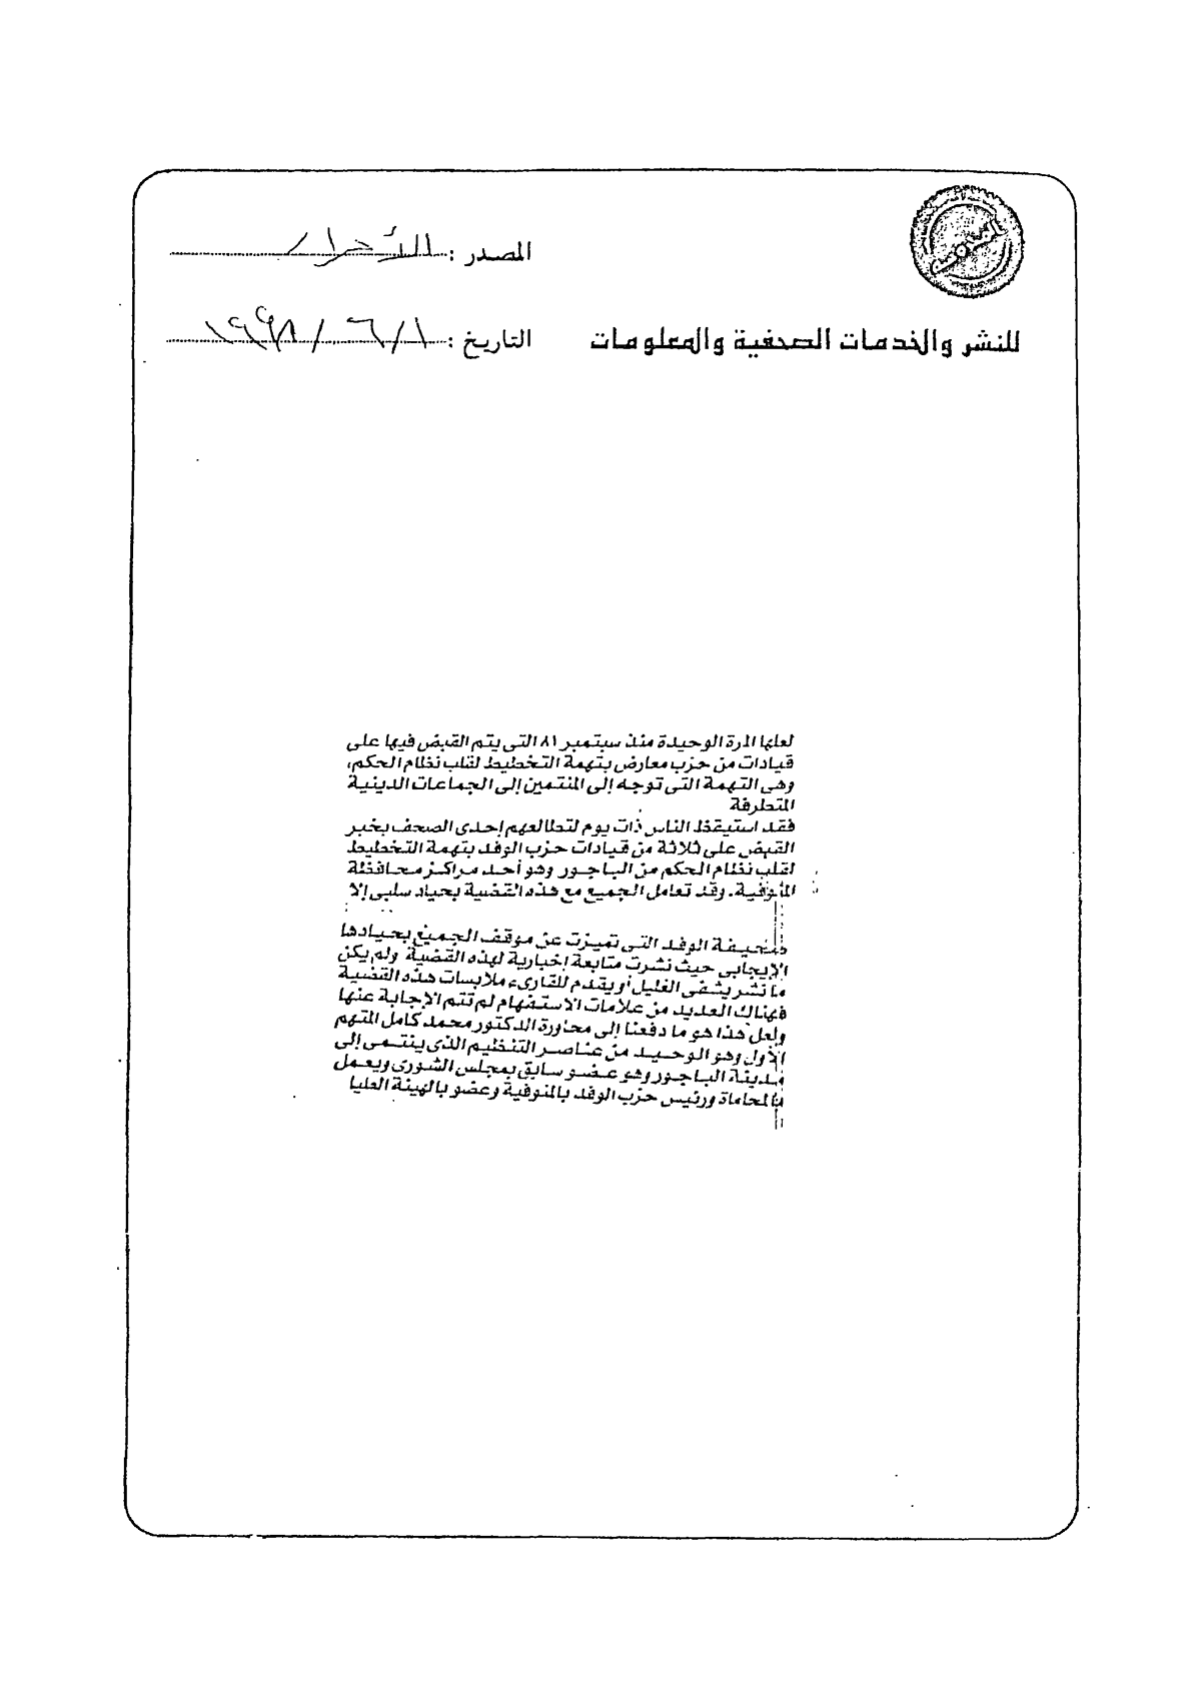 المصدر : الأحرار
للنشر والخدمات الصحفية والمعلومات
التاريخ : ١ / ٦ / ١٩٩٨
لعلها المرة الوحيدة منذ سبتمبر ٨١ التى يتم القبض فيها على
قيادات من حزب معارض بتهمة التخطيط لقلب نظام الحكم،
وهى التهمة التى توجه إلى المنتمين إلى الجماعات الدينية
المتطرفة
فقد استيقظ الناس ذات يوم لتطالعهم إحدى الصحف بخبر
القبض على ثلاثة من قيادات حزب الوفد بتهمة التخطيط
لقلب نظام الحكم من الباجور وهو أحد مراكز محافظة
المنوفية. وقد تعامل الجميع مع هذه القضية بحياد سلبى إلا
صحيفة الوفد التى تميزت عن موقف الجميع بحيادها
الإيجابى حيث نشرت متابعة إخبارية لهذه القضية ولم يكن
ما نشر يشفى الغليل أو يقدم للقارىء ملابسات هذه القضية
فهناك العديد من علامات الاستفهام لم تتم الإجابة عنها
ولعل هذا هو ما دفعنا إلى محاورة الدكتور محمد كامل المتهم
الأول وهو الوحيد من عناصر التنظيم الذى ينتمى إلى
مدينة الباجور وهو عضو سابق بمجلس الشورى ويعمل
بالمحاماة ورئيس حزب الوفد بالمنوفية وعضو بالهيئة العليا